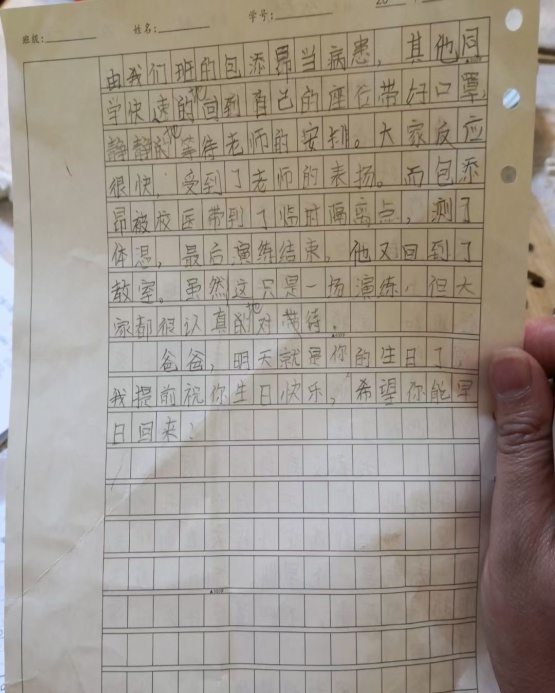 班级: 姓名: 学号:
由我们班的包添昂当病患，其他同
学快速的地回到自己的座位带好口罩，
静静的地等待老师的安排。大家反应
很快，受到了老师的表扬。而包添
昂被校医带到了临时隔离点，测了
体温，最后演练结束，他又回到了
教室。虽然这只是一场演练，但大
家都很认真的地对带待。
爸爸，明天就是你的生日了，
我提前祝你生日快乐，希望你能早
日回来！